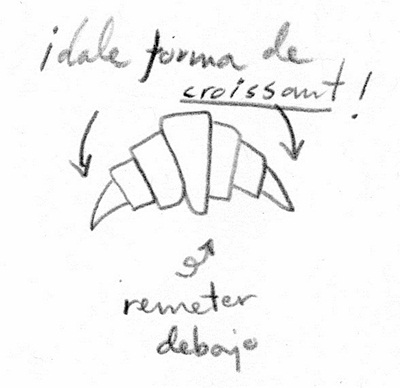 ¡dale forma de
croissant!
remeter
debajo